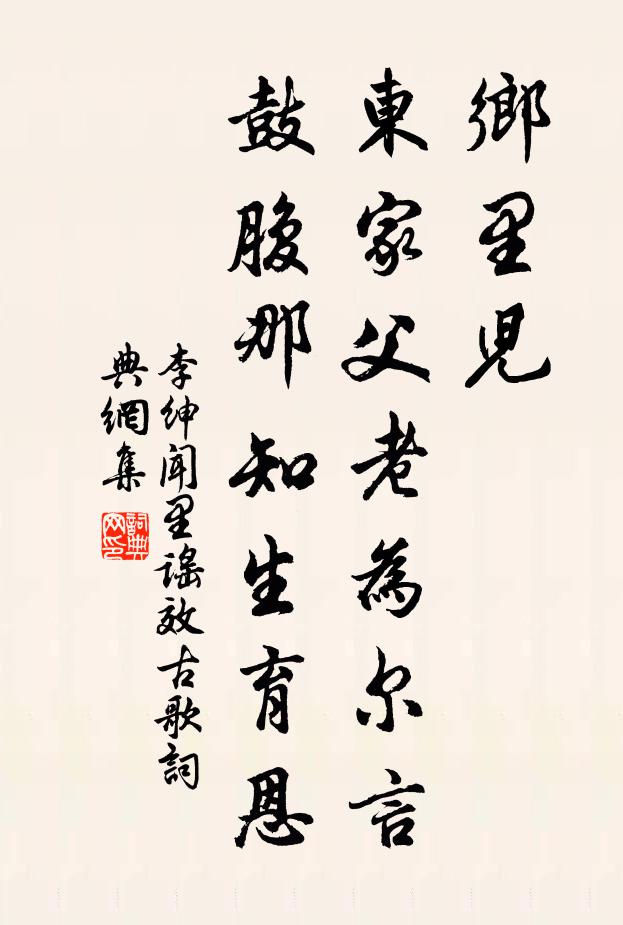 鄉里兒
東家父老為尔言
鼓腹那知生育恩
李紳聞里謠效古歌詞
典網集
詞典網印